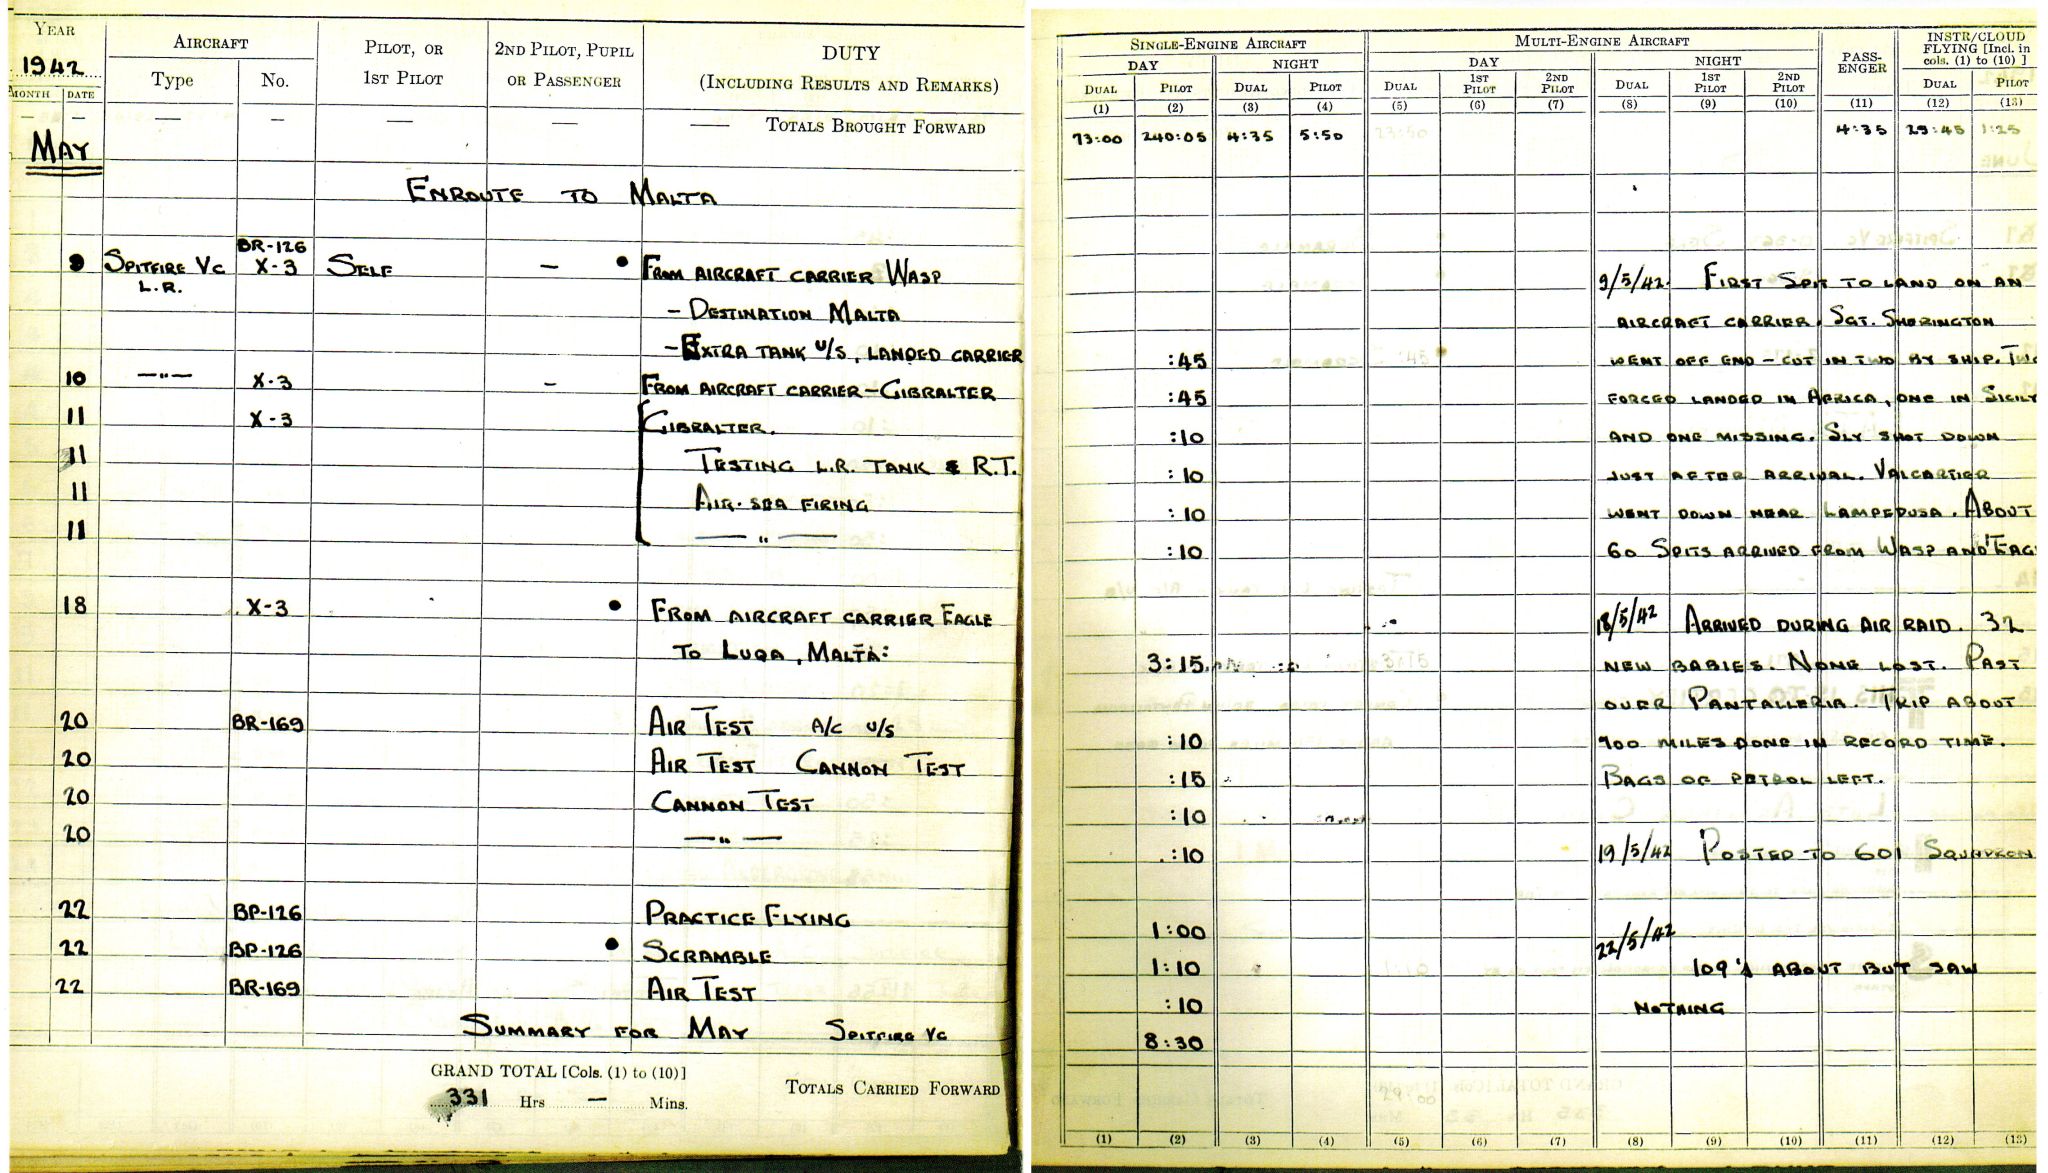 YEAR
1942
MONTH DATE
AIRCRAFT
Type No.
PILOT, OR
1ST PILOT
2ND PILOT, PUPIL
OR PASSENGER
DUTY
(INCLUDING RESULTS AND REMARKS)
— — — — — — — TOTALS BROUGHT FORWARD
MAY
ENROUTE TO MALTA
BR-126
9 SPITFIRE VC X-3 SELF — • FROM AIRCRAFT CARRIER WASP
L.R.
- DESTINATION MALTA
- EXTRA TANK U/S, LANDED CARRIER
10 —"— X-3 — FROM AIRCRAFT CARRIER - GIBRALTER
11 X-3 GIBRALTER.
11 TESTING L.R. TANK & R.T.
11 AIR-SEA FIRING
11 — " —
18 X-3 • FROM AIRCRAFT CARRIER EAGLE
TO LUQA, MALTA:
20 BR-169 AIR TEST A/C U/S
20 AIR TEST CANNON TEST
20 CANNON TEST
20 — " —
22 BP-126 PRACTICE FLYING
22 BP-126 • SCRAMBLE
22 BR-169 AIR TEST
SUMMARY FOR MAY SPITFIRE VC
GRAND TOTAL [Cols. (1) to (10)]
331 Hrs — Mins.
TOTALS CARRIED FORWARD
SINGLE-ENGINE AIRCRAFT MULTI-ENGINE AIRCRAFT PASS-
ENGER INSTR/CLOUD
FLYING [Incl. in
cols. (1) to (10) ]
DAY NIGHT DAY NIGHT
DUAL PILOT DUAL PILOT DUAL 1ST
PILOT 2ND
PILOT DUAL 1ST
PILOT 2ND
PILOT DUAL PILOT
(1) (2) (3) (4) (5) (6) (7) (8) (9) (10) (11) (12) (13)
73:00 240:05 4:35 5:50 23:50 4:35 29:45 1:25
9/5/42. FIRST SPIT TO LAND ON AN
AIRCRAFT CARRIER. SGT. SHERINGTON
:45 WENT OFF END - CUT IN TWO BY SHIP. TWO
:45 FORCED LANDED IN AFRICA, ONE IN SICILY
:10 AND ONE MISSING. SLY SHOT DOWN
:10 JUST AFTER ARRIVAL. VALCARTIER
:10 WENT DOWN NEAR LAMPEDUSA. ABOUT
:10 60 SPITS ARRIVED FROM WASP AND EAG
18/5/42 ARRIVED DURING AIR RAID. 32
3:15 NEW BABIES. NONE LOST. PAST
OVER PANTALLERIA. TRIP ABOUT
:10 700 MILES DONE IN RECORD TIME.
:15 BAGS OF PETROL LEFT.
:10
:10 19/5/42 POSTED TO 601 SQUADRON
1:00 22/5/42
1:10 109's ABOUT BUT SAW
:10 NOTHING
8:30
(1) (2) (3) (4) (5) (6) (7) (8) (9) (10) (11) (12) (13)